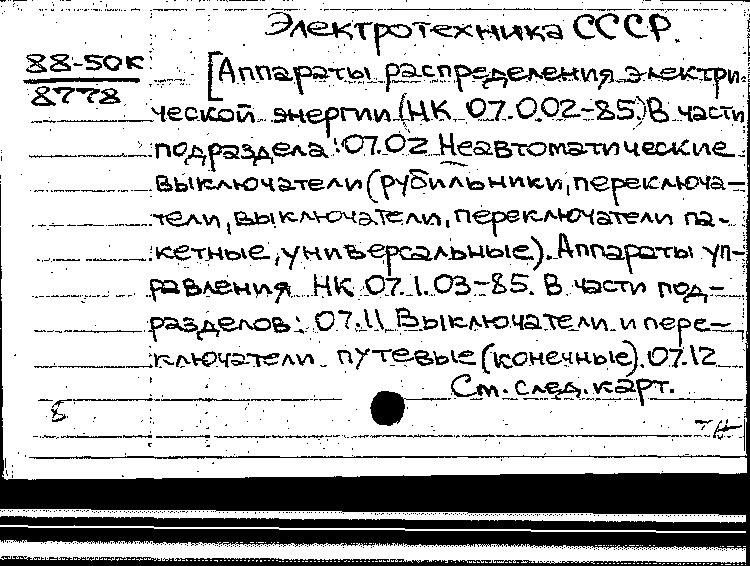 Электротехника СССР.
88-50к
8778
[Аппараты распределения электри-
ческой энергии (НК 07.0.02-85.) В части
подраздела: 07.02 Неавтоматические
выключатели (рубильники, переключа-
тели, выключатели, переключатели па-
кетные, универсальные). Аппараты уп-
равления НК 07.1.03-85. В части под-
разделов: 07.11 Выключатели и пере-
ключатели путевые (конечные). 07.12
См. след. карт.
8